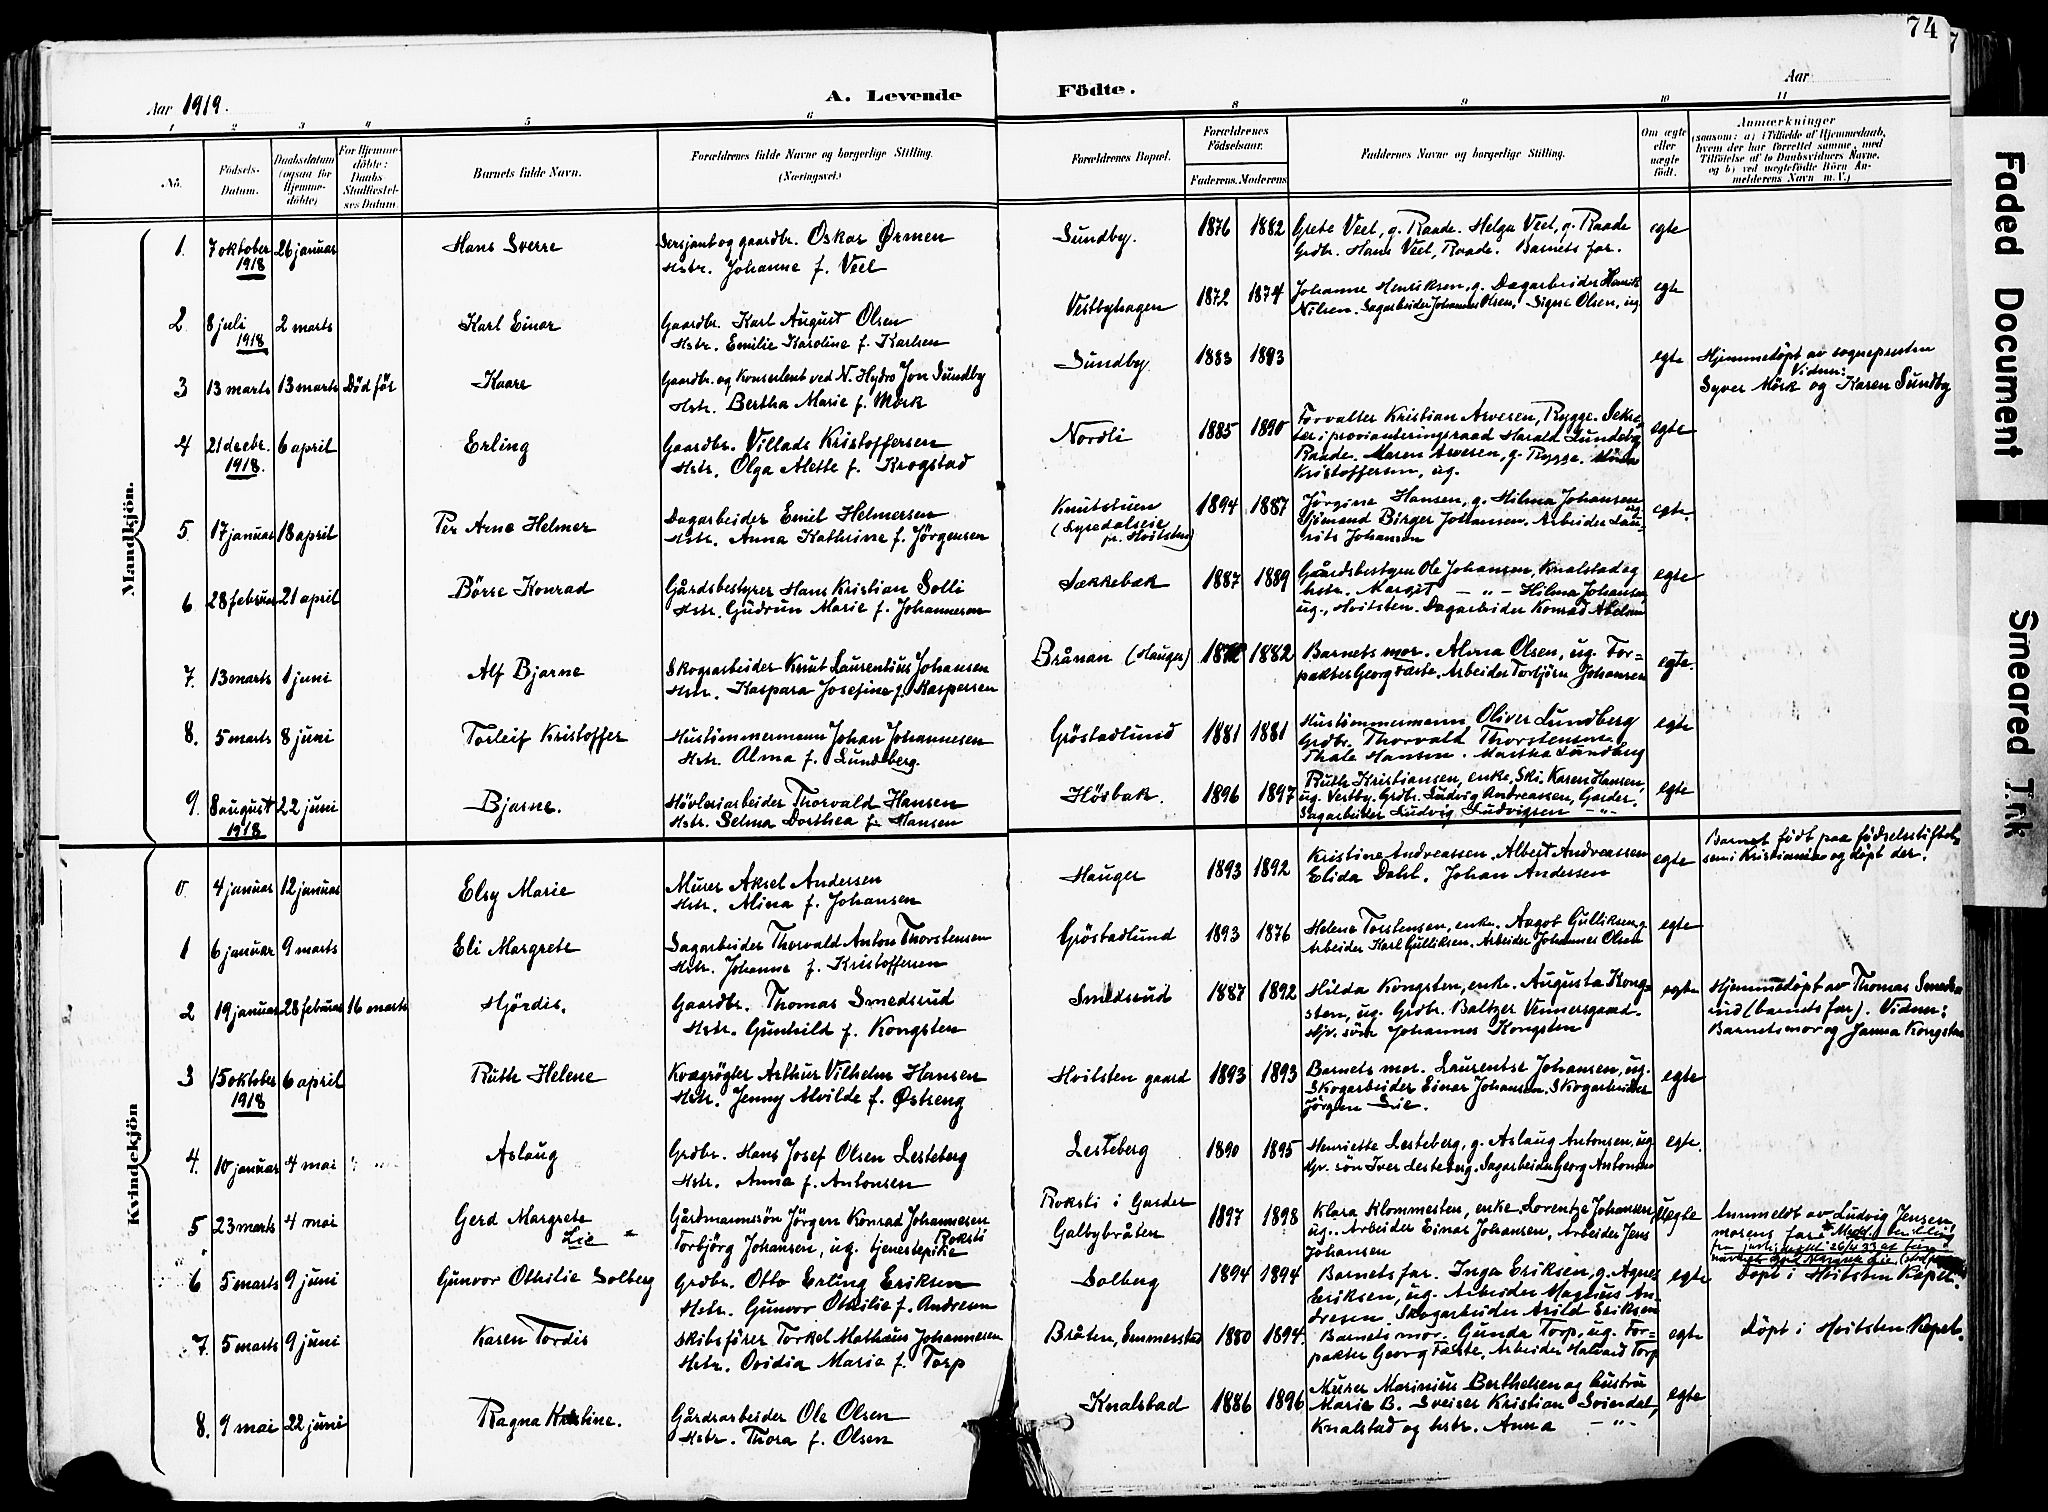 74
Aar 1919.
A. Levende
Födte.
Aar
1 2 3 4 5 6 8 9 10 11
No.
Födsels-
Datum.
Daabsdatum
(ogsaa for
Hjemme-
döbte)
For Hjemme-
döbte:
Daabs-
Stadfæstel-
ses Datum.
Barnets fulde Navn.
Forældrenes fulde Navne og borgerlige Stilling.
(Næringsvei.)
Forældrenes Bopæl.
Forældrenes
Födselsaar.
Faderens. Moderens
Faddernes Navne og borgerlige Stilling.
Om ægte
eller
uægte
födt.
Anmærkninger
(saasom: a) i Tilfælde af Hjemmedaab,
hvem der har forrettet samme, med
Tilföielse af to Daabsvidners Navne,
og b) ved uægtefödte Börn An-
melderens Navn m. V.)
Mandkjön.
1. 7 oktober 1918 26 januar Hans Sverre
Sersjant og gaardbr. Oskar Ørmen
Hstr. Johanne f. Veel
Sundby. 1876 1882
Grete Veel, g. Raade. Helga Veel, g. Raade
Grdbr. Hans Veel, Raade. Barnets far.
egte
2 8 juli 1918 2 marts Karl Einar
Gaardbr. Karl August Olsen
Hstr. Emilie Karoline f. Karlsen
Vestbyhagen 1872 1874
Johanne Henriksen, g. Dagarbeider Henrik
Nilsen. Sagarbeider Johannes Olsen, Signe Olsen, ug.
egte
3 13 marts 13 marts Död før Kaare
Gaardbr. og Konsulent ved N. Hydro Jon Sundby
Hstr. Bertha Marie f. Mørk
Sundby 1883 1893
egte
Hjemmedøpt av sognepresten
Vidner:
Syver Mörk og Karen Sundby
4 21 decbr. 1918. 6 april Erling
Gaardbr. Villads Kristoffersen
Hstr. Olga Alette f. Krogstad
Nordli 1885 1890
Forvalter Kristian Arvesen, Rygge. Sekre-
tær i provianteringsraad Harald Lundeby
Raade. Maren Arvesen, g. Rygge.
Kristoffersen, ug.
egte
5. 17 januar 18 april Per Arne Helmer
Dagarbeider Emil Helmersen
Hstr. Anna Kathrine f. Jörgensen
Knutstuen
(Spredalseie
pr. Hvitsten)
1894 1887
Jörgine Hansen, g. Hilma Johansen ug
Sjömand Birger Johansen. Arbeider Lau-
rits Johansen
egte.
6 28 februar 21 april Börre Konrad
Gårdsbestyrer Hans Kristian Solli
Hstr. Gudrun Marie f. Johannesen
Sækkebæk 1887 1889
Gaardsbestyrer Ole Johansen, Knalstad og
hstr. Margit — " — Hilma Johansen
ug., Hvitsten. Dagarbeider Konrad Abelson
egte
7. 13 marts 1 juni Alf Bjarne
Skogsarbeider Knut Laurentius Johansen
Hstr. Kaspara Josefine f. Kaspersen
Brånan (Hauger) 1882
Barnets mor. Alma Olsen, ug. For-
pakter Georg Fæste. Arbeider Torbjörn Johansen
egte.
8. 5 marts 8 juni Torleif Kristoffer
Hustömmermann Johan Johannesen
Hstr. Alma f. Lundberg.
Gröstadlund 1881 1881
Hustömmermann Oliver Lundberg
Grdbr. Thorvald Thorstensen
Thale Hansen. Martha Lundberg
egte
9. 8 august 1918 22 juni Bjarne.
Høvleriarbeider Thorvald Hansen
Hstr. Selma Dorthea f. Hansen
Høsbæk. 1896 1897
Ruth Kristiansen, enke, Ski. Karen Hansen,
ug. Vestby. Grdbr. Ludvig Andreassen, Garder.
Sagarbeider Ludvig Ludvigsen — " —
egte
Kvindekjön
0. 4 januar 12 januar Elsy Marie
Murer Aksel Andersen
Hstr. Alina f. Johansen
Hauger 1893 1892
Kristine Andreassen. Albert Andreassen
Elida Dahl. Johan Andersen
egte
Barnet født paa fødselsstiftel-
sen i Kristiania og døpt der.
1 6 januar 9 marts Eli Margrete
Sagarbeider Thorvald Anton Thorstensen
Hstr. Johanne f. Kristoffersen
Gröstadlund 1893 1876
Helene Torstensen, enke. Aagot Gulliksen g.
Arbeider Karl Gulliksen. Arbeider Johannes Olsen
egte
2 19 januar 28 februar 16 marts Hjördis.
Gaardbr. Thomas Smedsrud
Hstr. Gunhild f. Kongsten
Smedsrud 1887 1892
Hilda Kongsten, enke. Augusta Kong-
sten, ug. Grdbr. Baltzer Vennersgaard.
Gv. sön Johannes Kongsten
egte
Hjemmedøpt av Thomas Smeds-
rud (barnets far). Vidner:
Barnets mor og Janna Kongsten
3 15 oktober 1918 6 april Ruth Helene
Kvægrøgter Arthur Vilhelm Hansen
Hstr. Jenny Alvilde f. Østreng
Hvitsten gaard 1893 1893
Barnets mor. Laurentse Johansen, ug.
Skogarbeider Einar Johansen. Skogarbeider
Jörgen Lie.
egte
4. 10 januar 4 mai Aslaug
Grdbr. Hans Josef Olsen Lesteberg
Hstr. Anna f. Antonsen
Lesteberg 1890 1895
Henriette Lesteberg, g. Aslaug Antonsen, ug
Gv. sön Iver Lesteberg. Sagarbeider Georg Antonsen
egte.
5 23 marts 4 mai Gerd Margrete
Lie
Gårdmannssön Jörgen Konrad Johannesen
Roksti
Torbjörg Johansen, ug. tjenestepike
Roksti i Garder
Galbybråten
1897 1898
Klara Klommesten, enke. Lorentze Johansen
ug. Arbeider Einar Johansen, Arbeider Jens
Johansen
Uegte
Anmeldt av Ludvig Jensen,
morens far.
6 5 marts 9 juni Gunvor Othilie Solberg
Grdbr. Otto Erling Eriksen
Hstr. Gunvor Othilie f. Andresen
Solberg 1894 1894
Barnets far. Inga Eriksen, g. Agnes
Eriksen, ug. Arbeider Magnus An-
dresen. Skogarbeider Arild Eriksen
egte
Döpt i Hvitsten Kapel.
7. 5 marts 9 juni Karen Tordis
Skibsfører Torkel Mathæus Johannesen
Hstr. Ovidia Marie f. Torp
Bråten, Emmerstad 1880 1894.
Barnets mor. Gunda Torp, ug. For-
pakter Georg Fæste, Arbeider Halvard Torp
egte
Döpt i Hvitsten Kapel.
8. 9 mai 22 juni Ragna Kristine.
Gårdsarbeider Ole Olsen
Hstr. Thora f. Olsen
Knalstad 1886 1896
Murer Marinius Berthelsen og hustru
Marie B. Sveiser Kristian Soiendal,
Knalstad og hstr. Anna — " —
egte
Faded Document
Smeared Ink